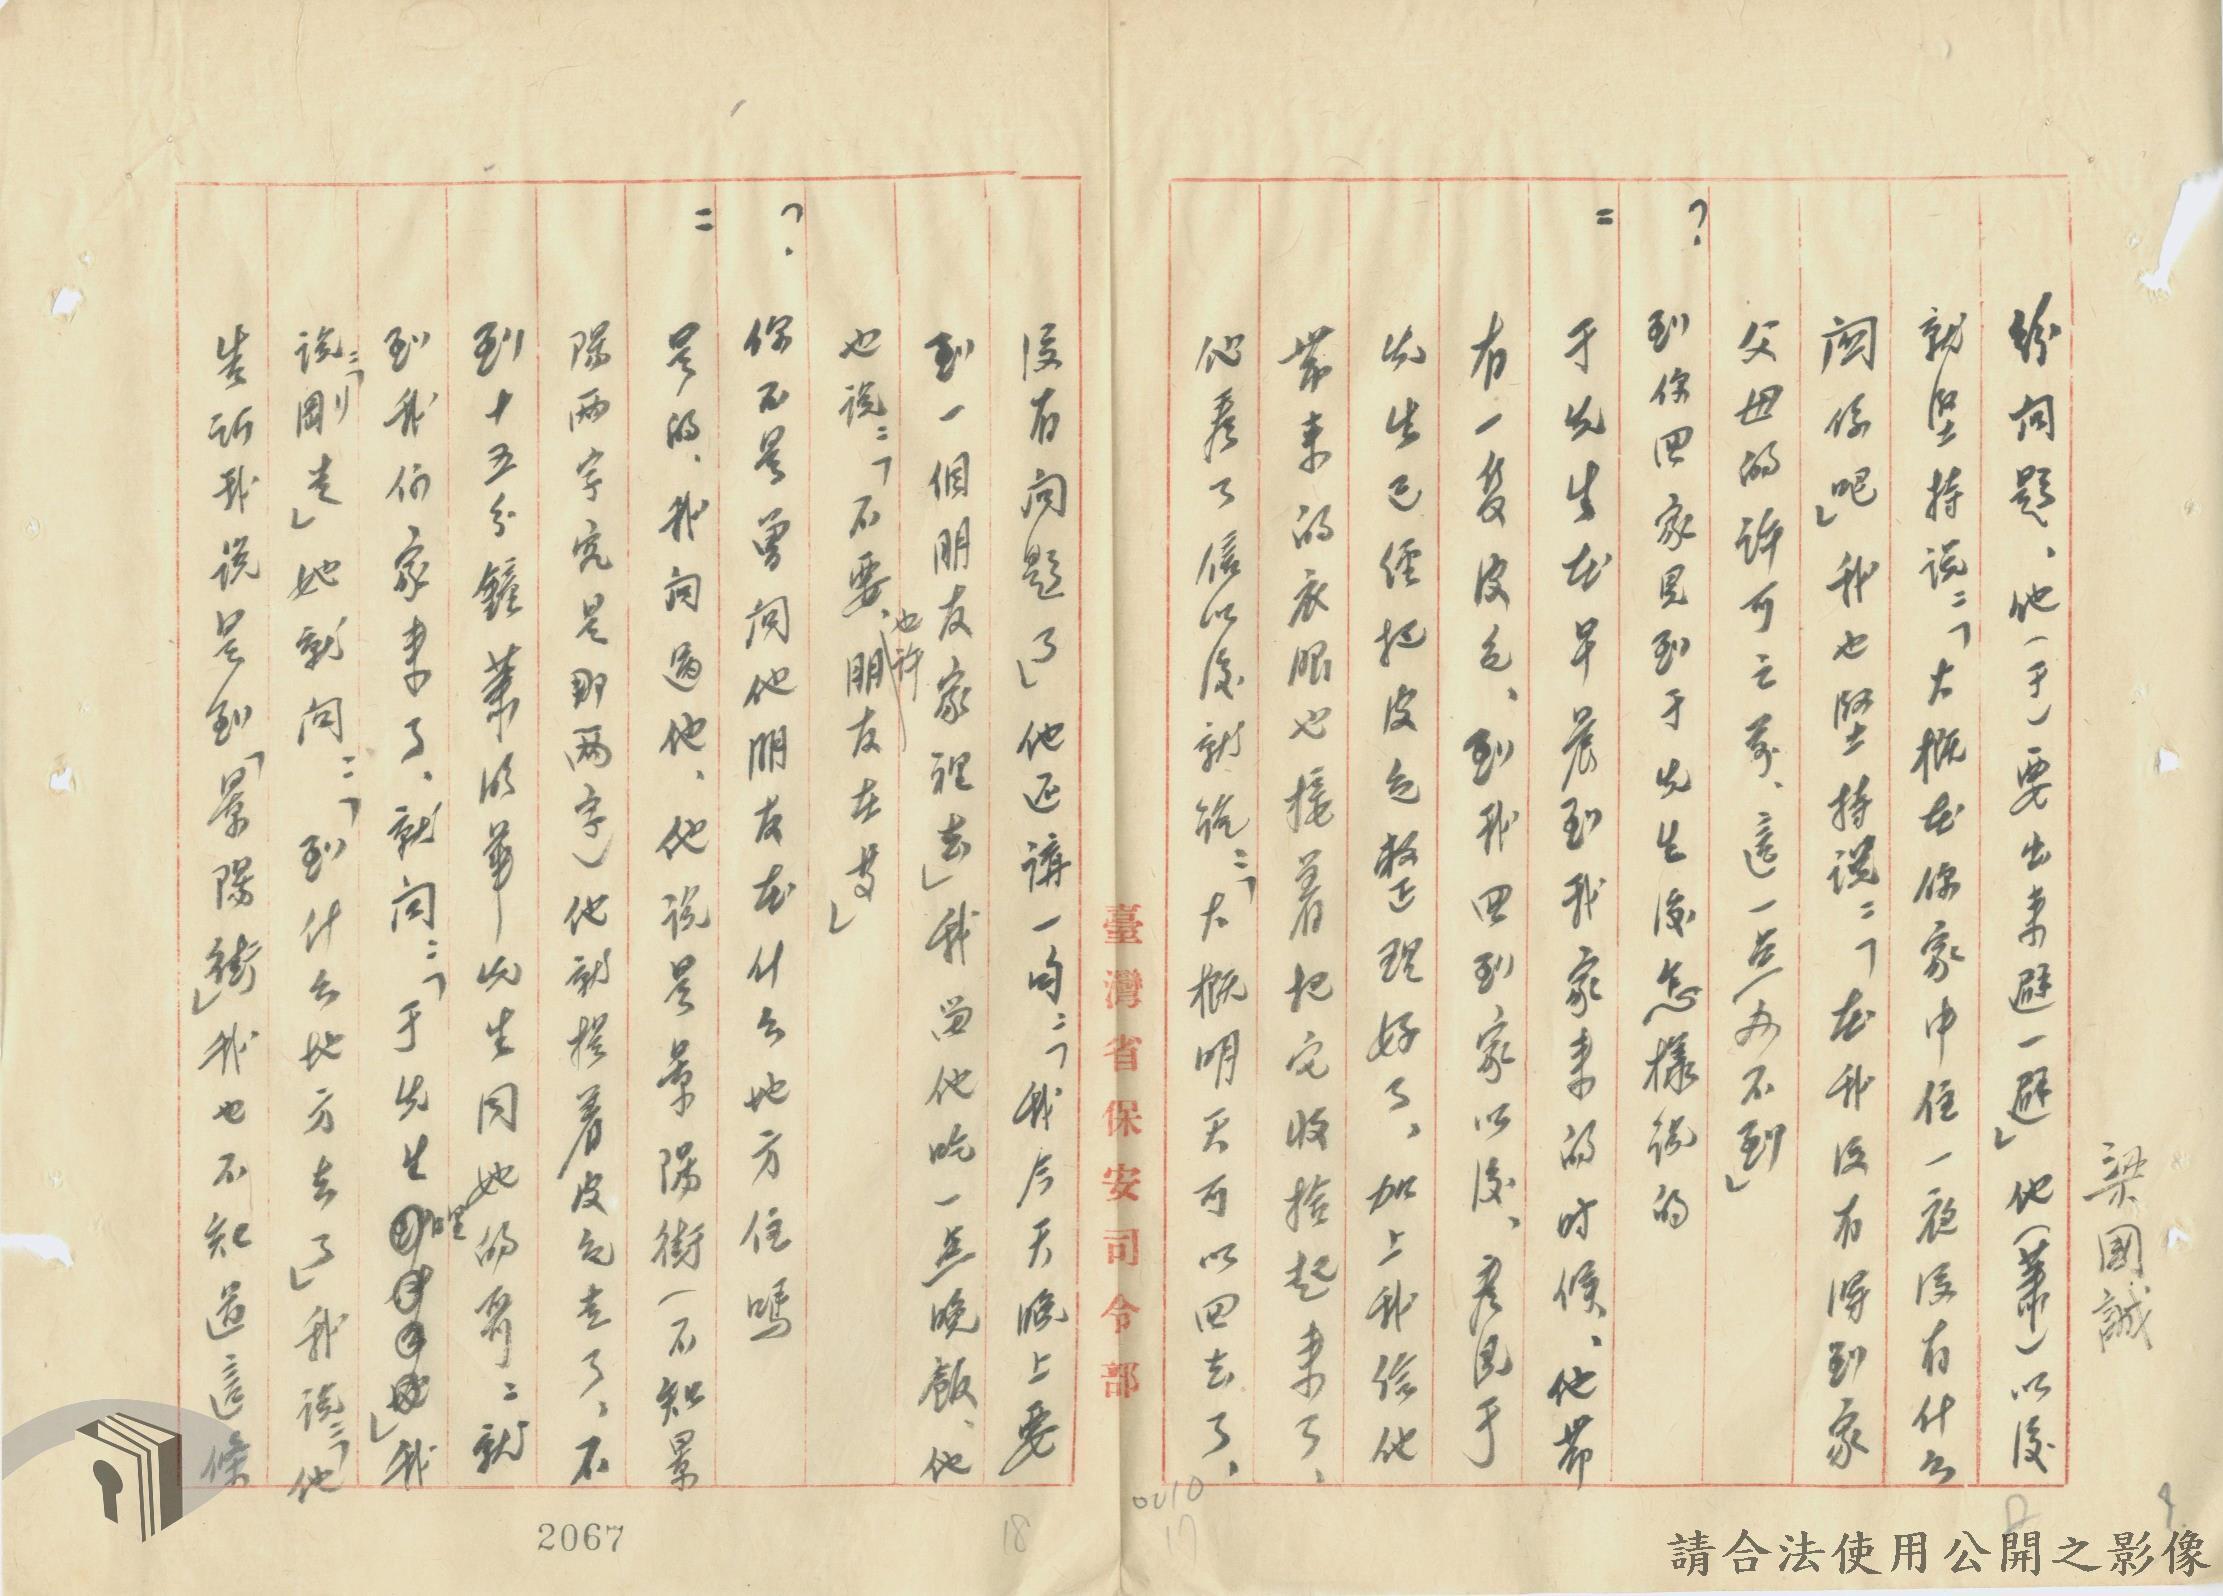 梁國誠
紛問題、他(于)要出来避一避」他(蕭)以後
就堅持說:「大概在你家中住一夜沒有什么
関係吧」我也堅持說:「在我沒有得到家
父母的許可之前、這一点办不到」
? 到你回家見到于先生後怎樣說的
= 于先生在早晨到我家来的时候、他帶
有一隻皮包、到我回到家以後、看見于
先生已經把皮包整理好了、加上我給他
帶来的衣服也接着把它收拾起来了、
他看了信以後就說:「大概明天可以回去了、
臺灣省保安司令部
沒有问题了」他还講一句:「我今天晚上要
到一個朋友家裡去」我留他吃一点晚飯、他
也說:「不要、也許朋友在等」
? 你不是曾问他朋友在什么地方住嗎
= 是的、我问過他、他說是景陽街(不知景
陽两字究是那两字)他就提着皮包走了、不
到十五分鐘蕭明華先生同她的哥:就
到我们家来了、就问:「于先生呢」我
說:「剛走」她就问:「到什么地方去了」我說:「他
告訴我說是到「景陽街」我也不知道這條
2067
18
0010
17
請合法使用公開之影像